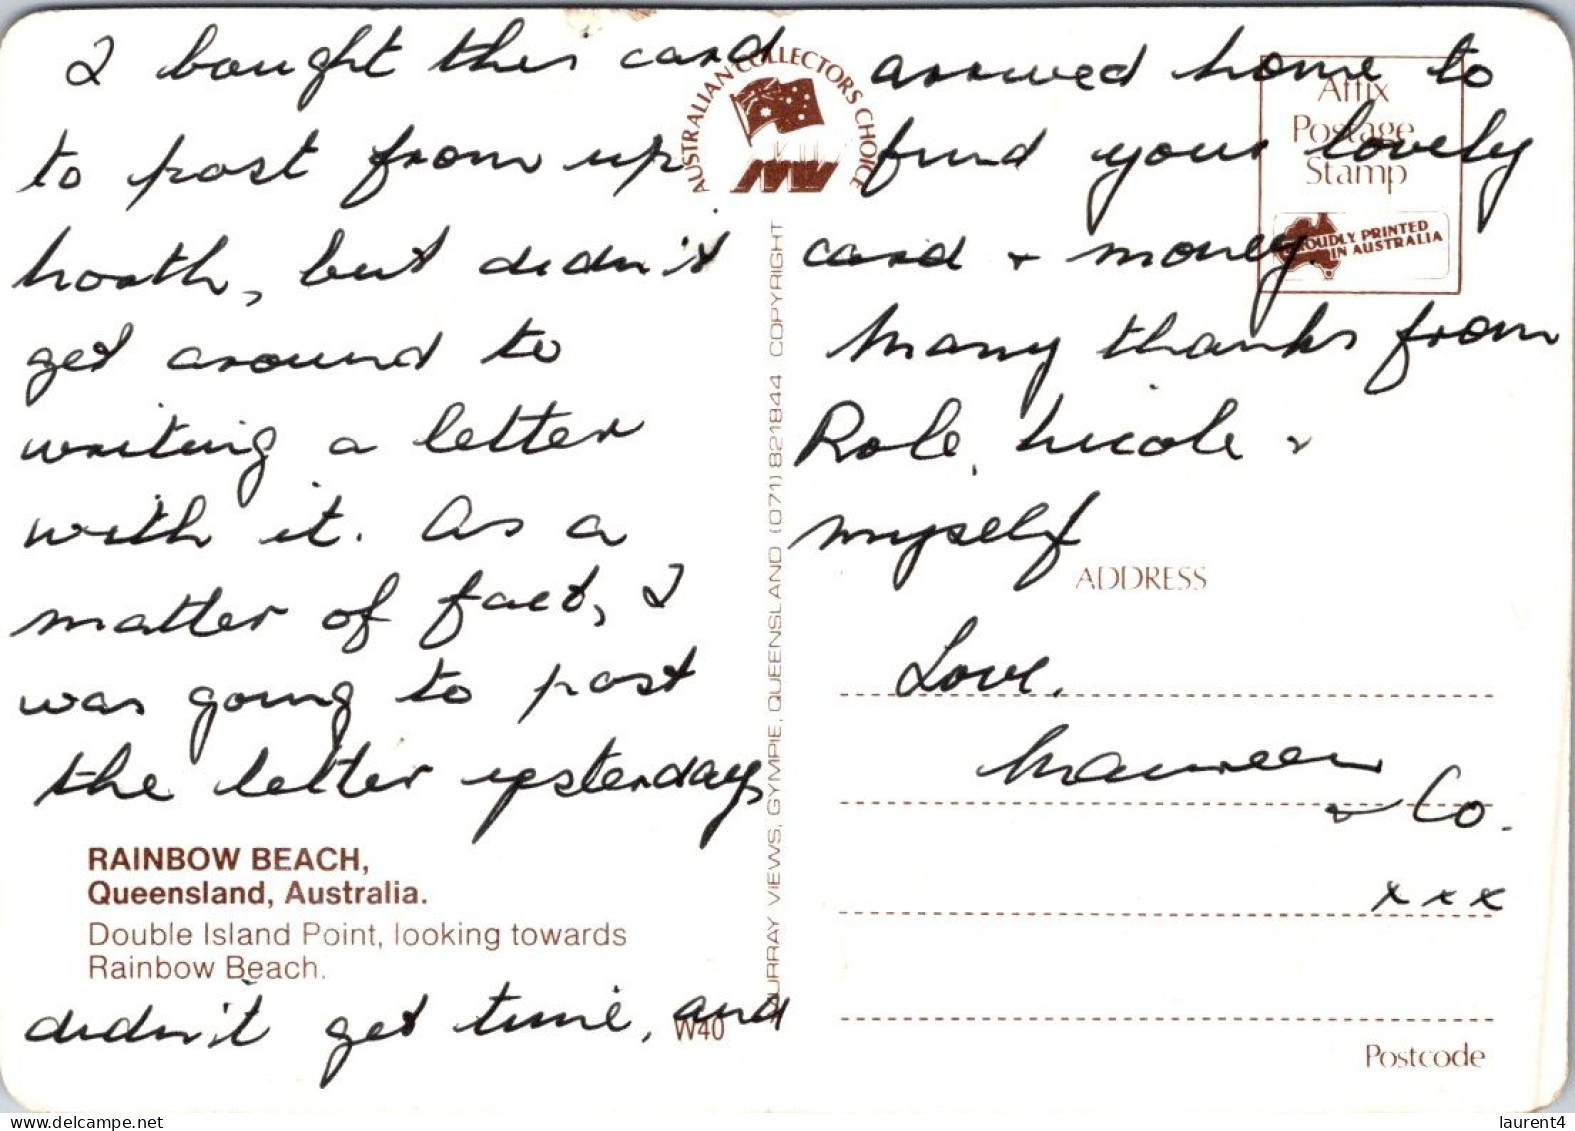 I bought this card
to post from up
north, but didn't
get around to
writing a letter
with it. As a
matter of fact, I
was going to post
the letter yesterday,
RAINBOW BEACH,
Queensland, Australia.
Double Island Point, looking towards
Rainbow Beach.
didn't get time, and
W40
MURRAY VIEWS, GYMPIE, QUEENSLAND (071) 821844 COPYRIGHT
AUSTRALIAN COLLECTORS CHOICE
arrived home to
find your lovely
card + money.
Many thanks from
Role, Nicole +
myself
Affix
Postage
Stamp
PROUDLY PRINTED
IN AUSTRALIA
ADDRESS
Love,
Maureen
+ Co.
x x x
Postcode
laurent4